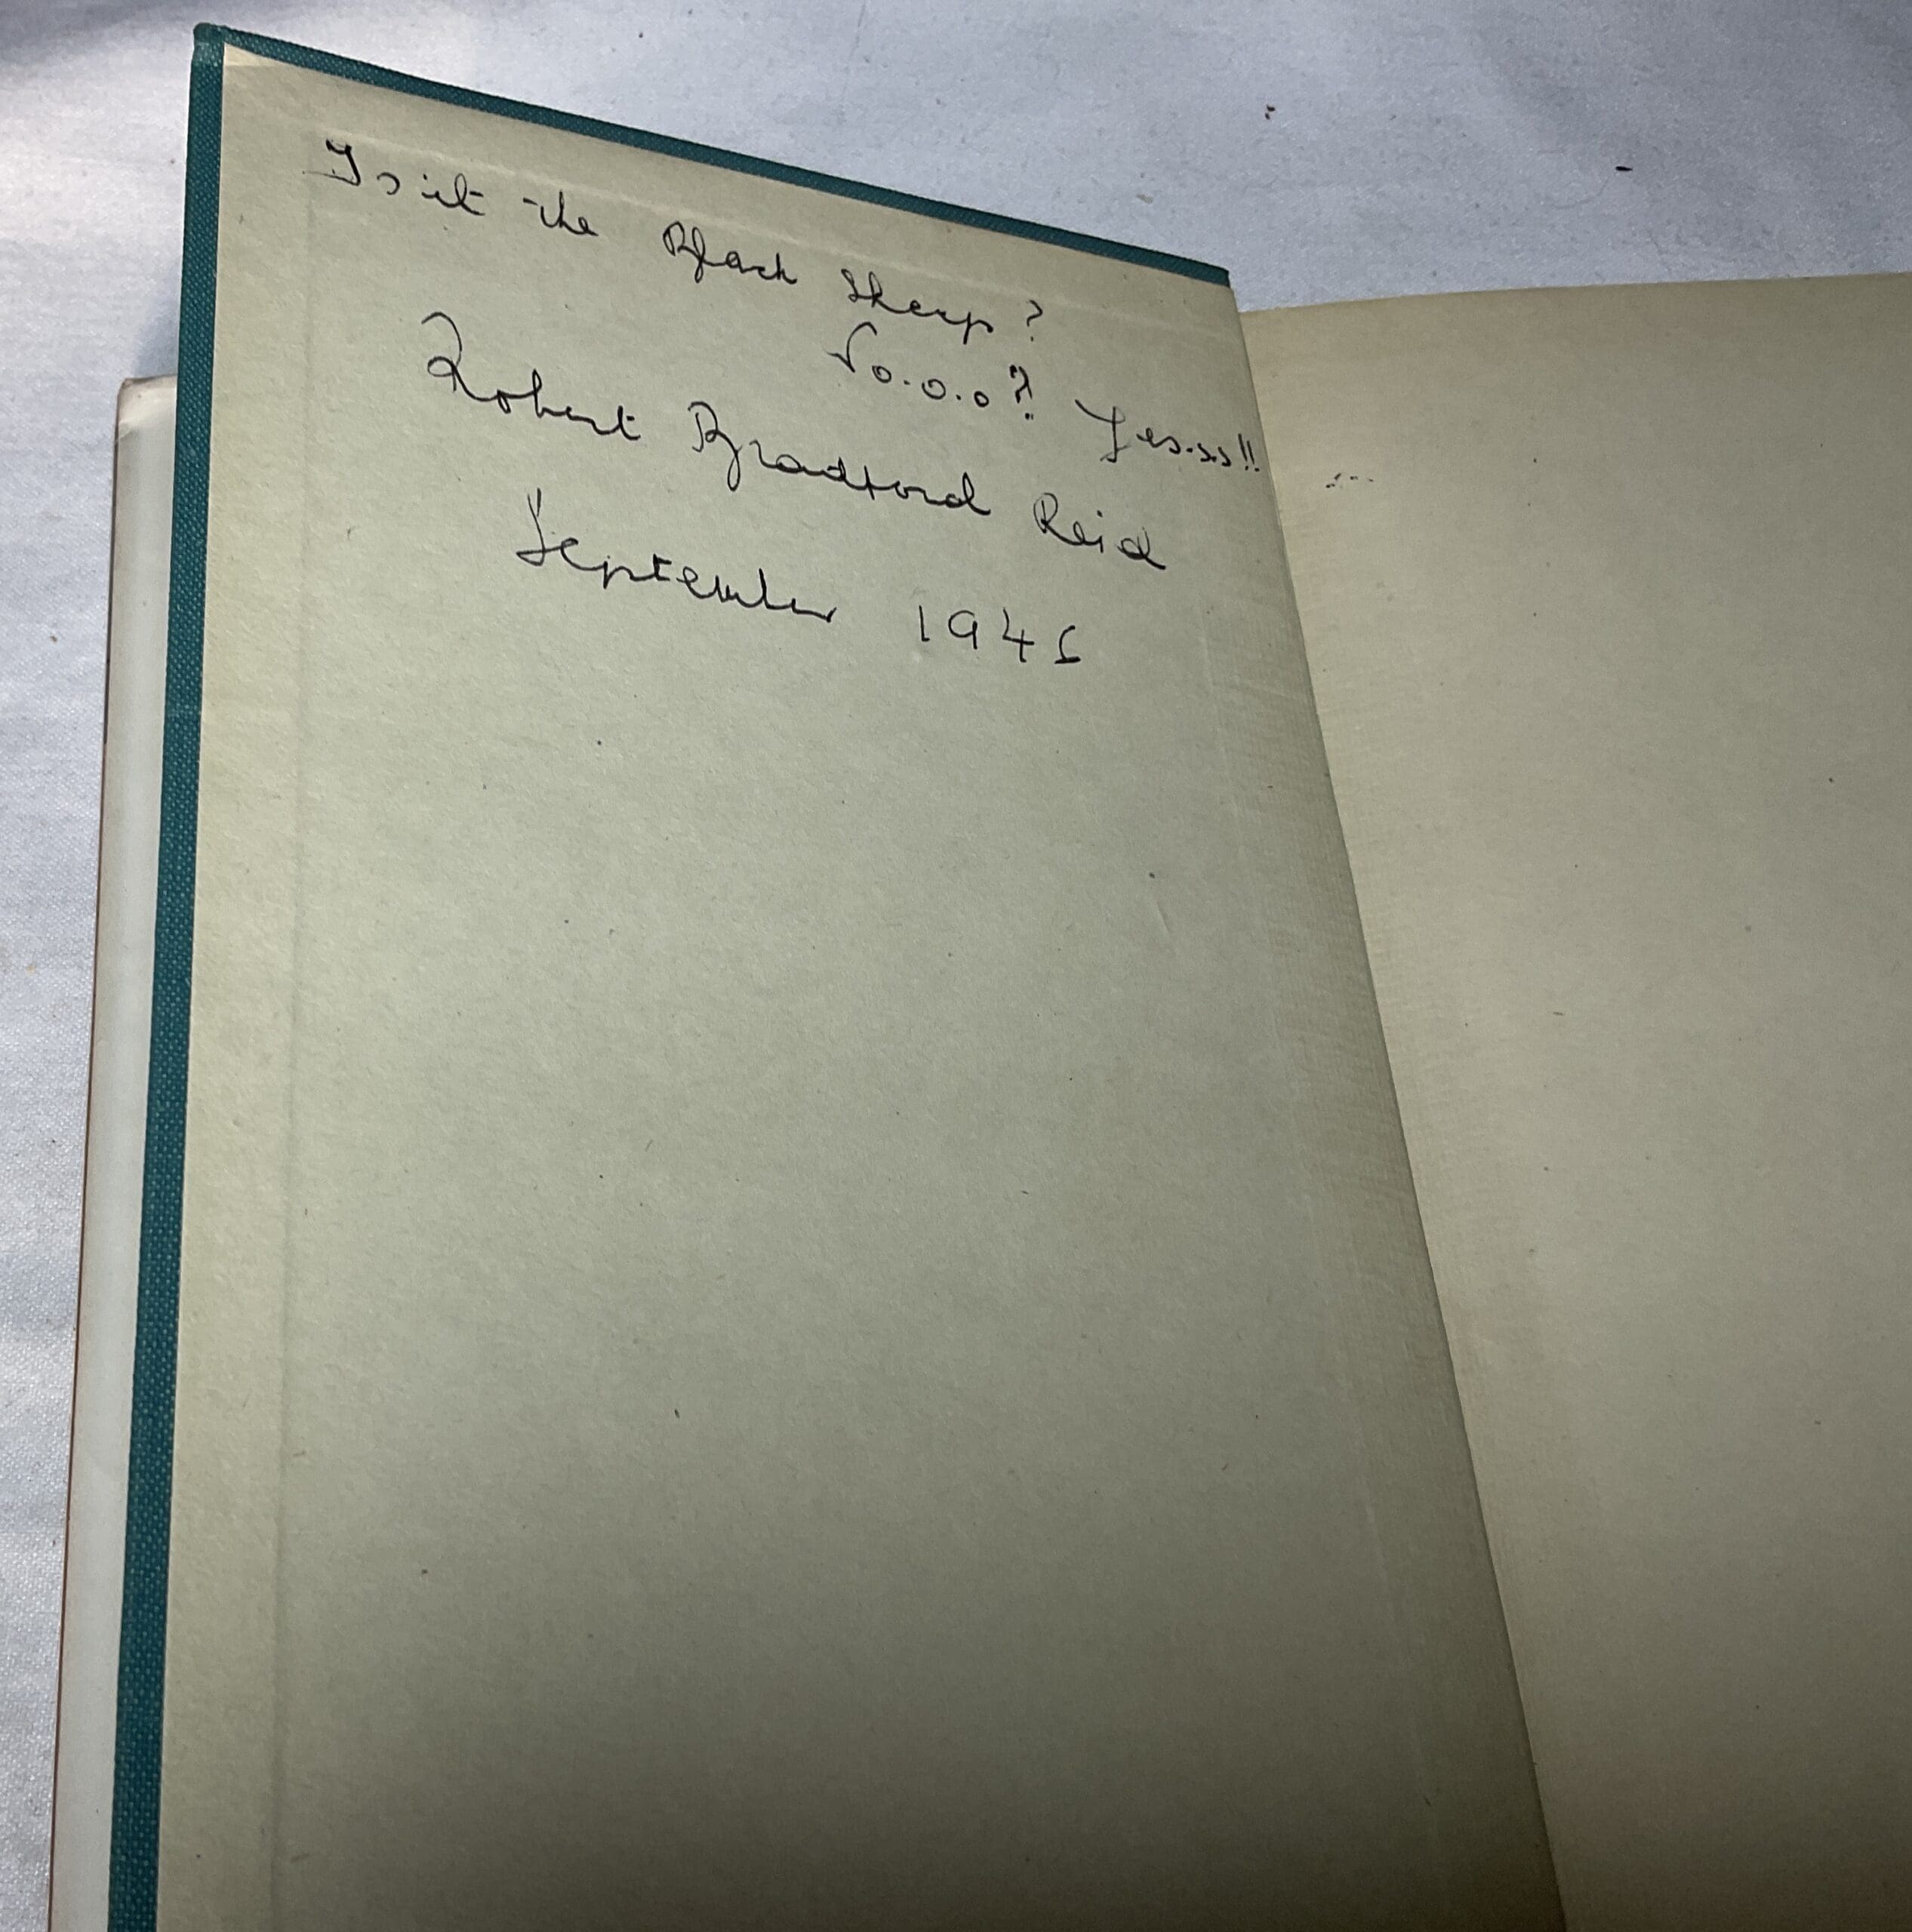 Is it the Black Sheep?
No.o.o? Yes.ss!!
Robert Bradford Reid
September 1946